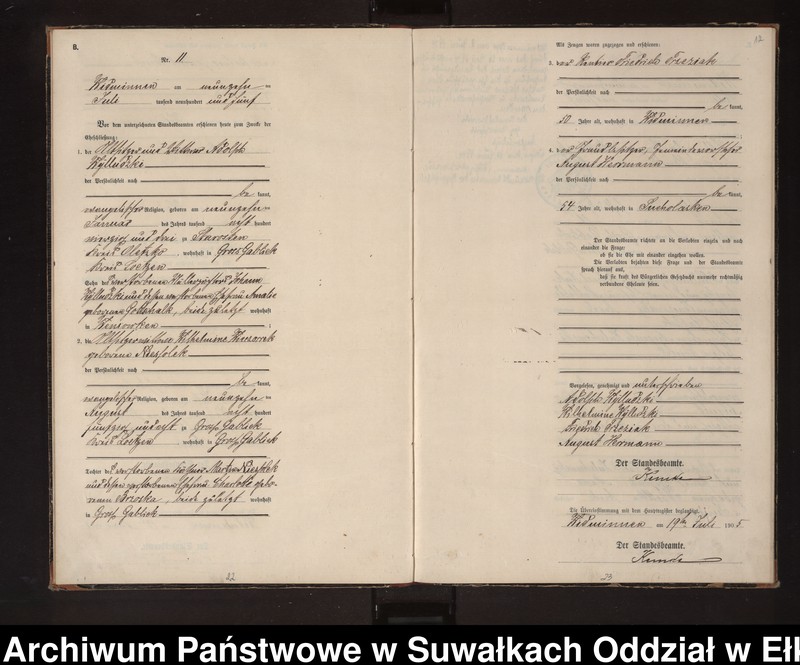 8.
Nr. 11
Widminnen am neunzehn ten
Juli tausend neunhundert und fünf
Vor dem unterzeichneten Standesbeamten erschienen heute zum Zwecke der
Eheschließung:
1. der Altsitzer und Wittwer Adolph
Wylludzki
der Persönlichkeit nach
be kannt,
evangelischer Religion, geboren am neunzehn ten
Januar des Jahres tausend acht hundert
vierzig und drei zu
Kreis Oletzko, wohnhaft in Gross Gablick
Kreis Loetzen
Sohn des verstorbenen Johann
Wylludzki und dessen verstorbenen Ehefrau Amalie
geborenen Gottschalk, beide zuletzt wohnhaft
in
2. die Wilhelmine Wieczorrek
geborene
der Persönlichkeit nach
be kannt,
evangelischer Religion, geboren am neunzehn ten
August des Jahres tausend acht hundert
fünfzig und acht zu Gross Gablick
Kreis Loetzen, wohnhaft in Gross Gablick
Tochter des verstorbenen
und dessen verstorbenen Ehefrau Charlotte gebo-
renen beide zuletzt wohnhaft
in Gross Gablick
22
12
Als Zeugen waren zugezogen und erschienen:
3. der Rentier Friedrich
der Persönlichkeit nach
be kannt,
50 Jahre alt, wohnhaft in Widminnen
4. der
August Hermann
der Persönlichkeit nach
be kannt,
54 Jahre alt, wohnhaft in Sucholasken
Der Standesbeamte richtete an die Verlobten einzeln und nach
einander die Frage:
ob sie die Ehe mit einander eingehen wollen.
Die Verlobten bejahten diese Frage und der Standesbeamte
sprach hierauf aus,
daß sie kraft des Bürgerlichen Gesetzbuchs nunmehr rechtmäßig
verbundene Eheleute seien.
Vorgelesen, genehmigt und unterschrieben
Adolph Wylludzki
Wilhelmine Wylludzki
Friedrich
August Hermann
Der Standesbeamte.
Die Übereinstimmung mit dem Hauptregister beglaubigt.
Widminnen am 19ten Juli 1905
Der Standesbeamte.
23
Archiwum Państwowe w Suwałkach Oddział w Ełk